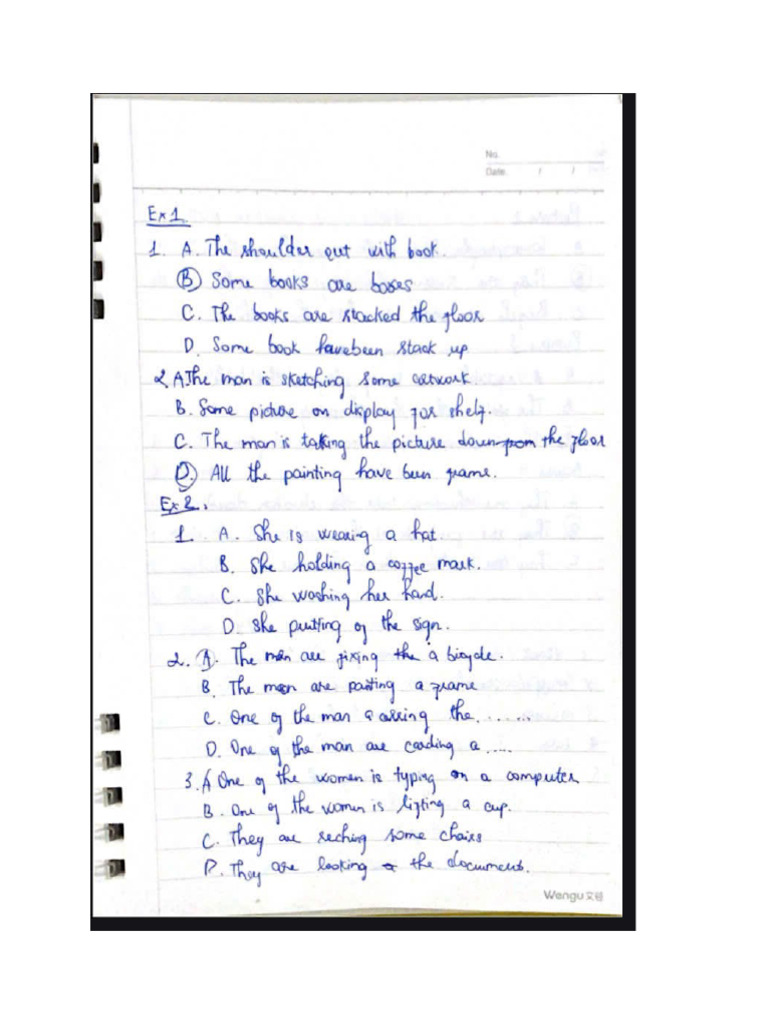 No.
Date. / /
Ex 1
1. A. The shoulder out with book.
B Some books are boxes
C. The books are stacked the floor
D. Some book have been stack up
2. A. The man is sketching some artwork
B. Some picture on display for shelf.
C. The man is taking the picture down from the floor
D. All the painting have been frame.
Ex 2.
1. A. She is wearing a hat
B. She holding a coffee mark.
C. She washing her hard.
D. She putting of the sign.
2. A. The man are fixing the a bicycle.
B. The man are pasting a frame
C. One of the man a the .......
D. One of the man are a .....
3. A One of the women is typing on a computer
B. One of the women is lifting a cup.
C. They are reching some chairs
D. They are looking the document.
Wengu 文谷